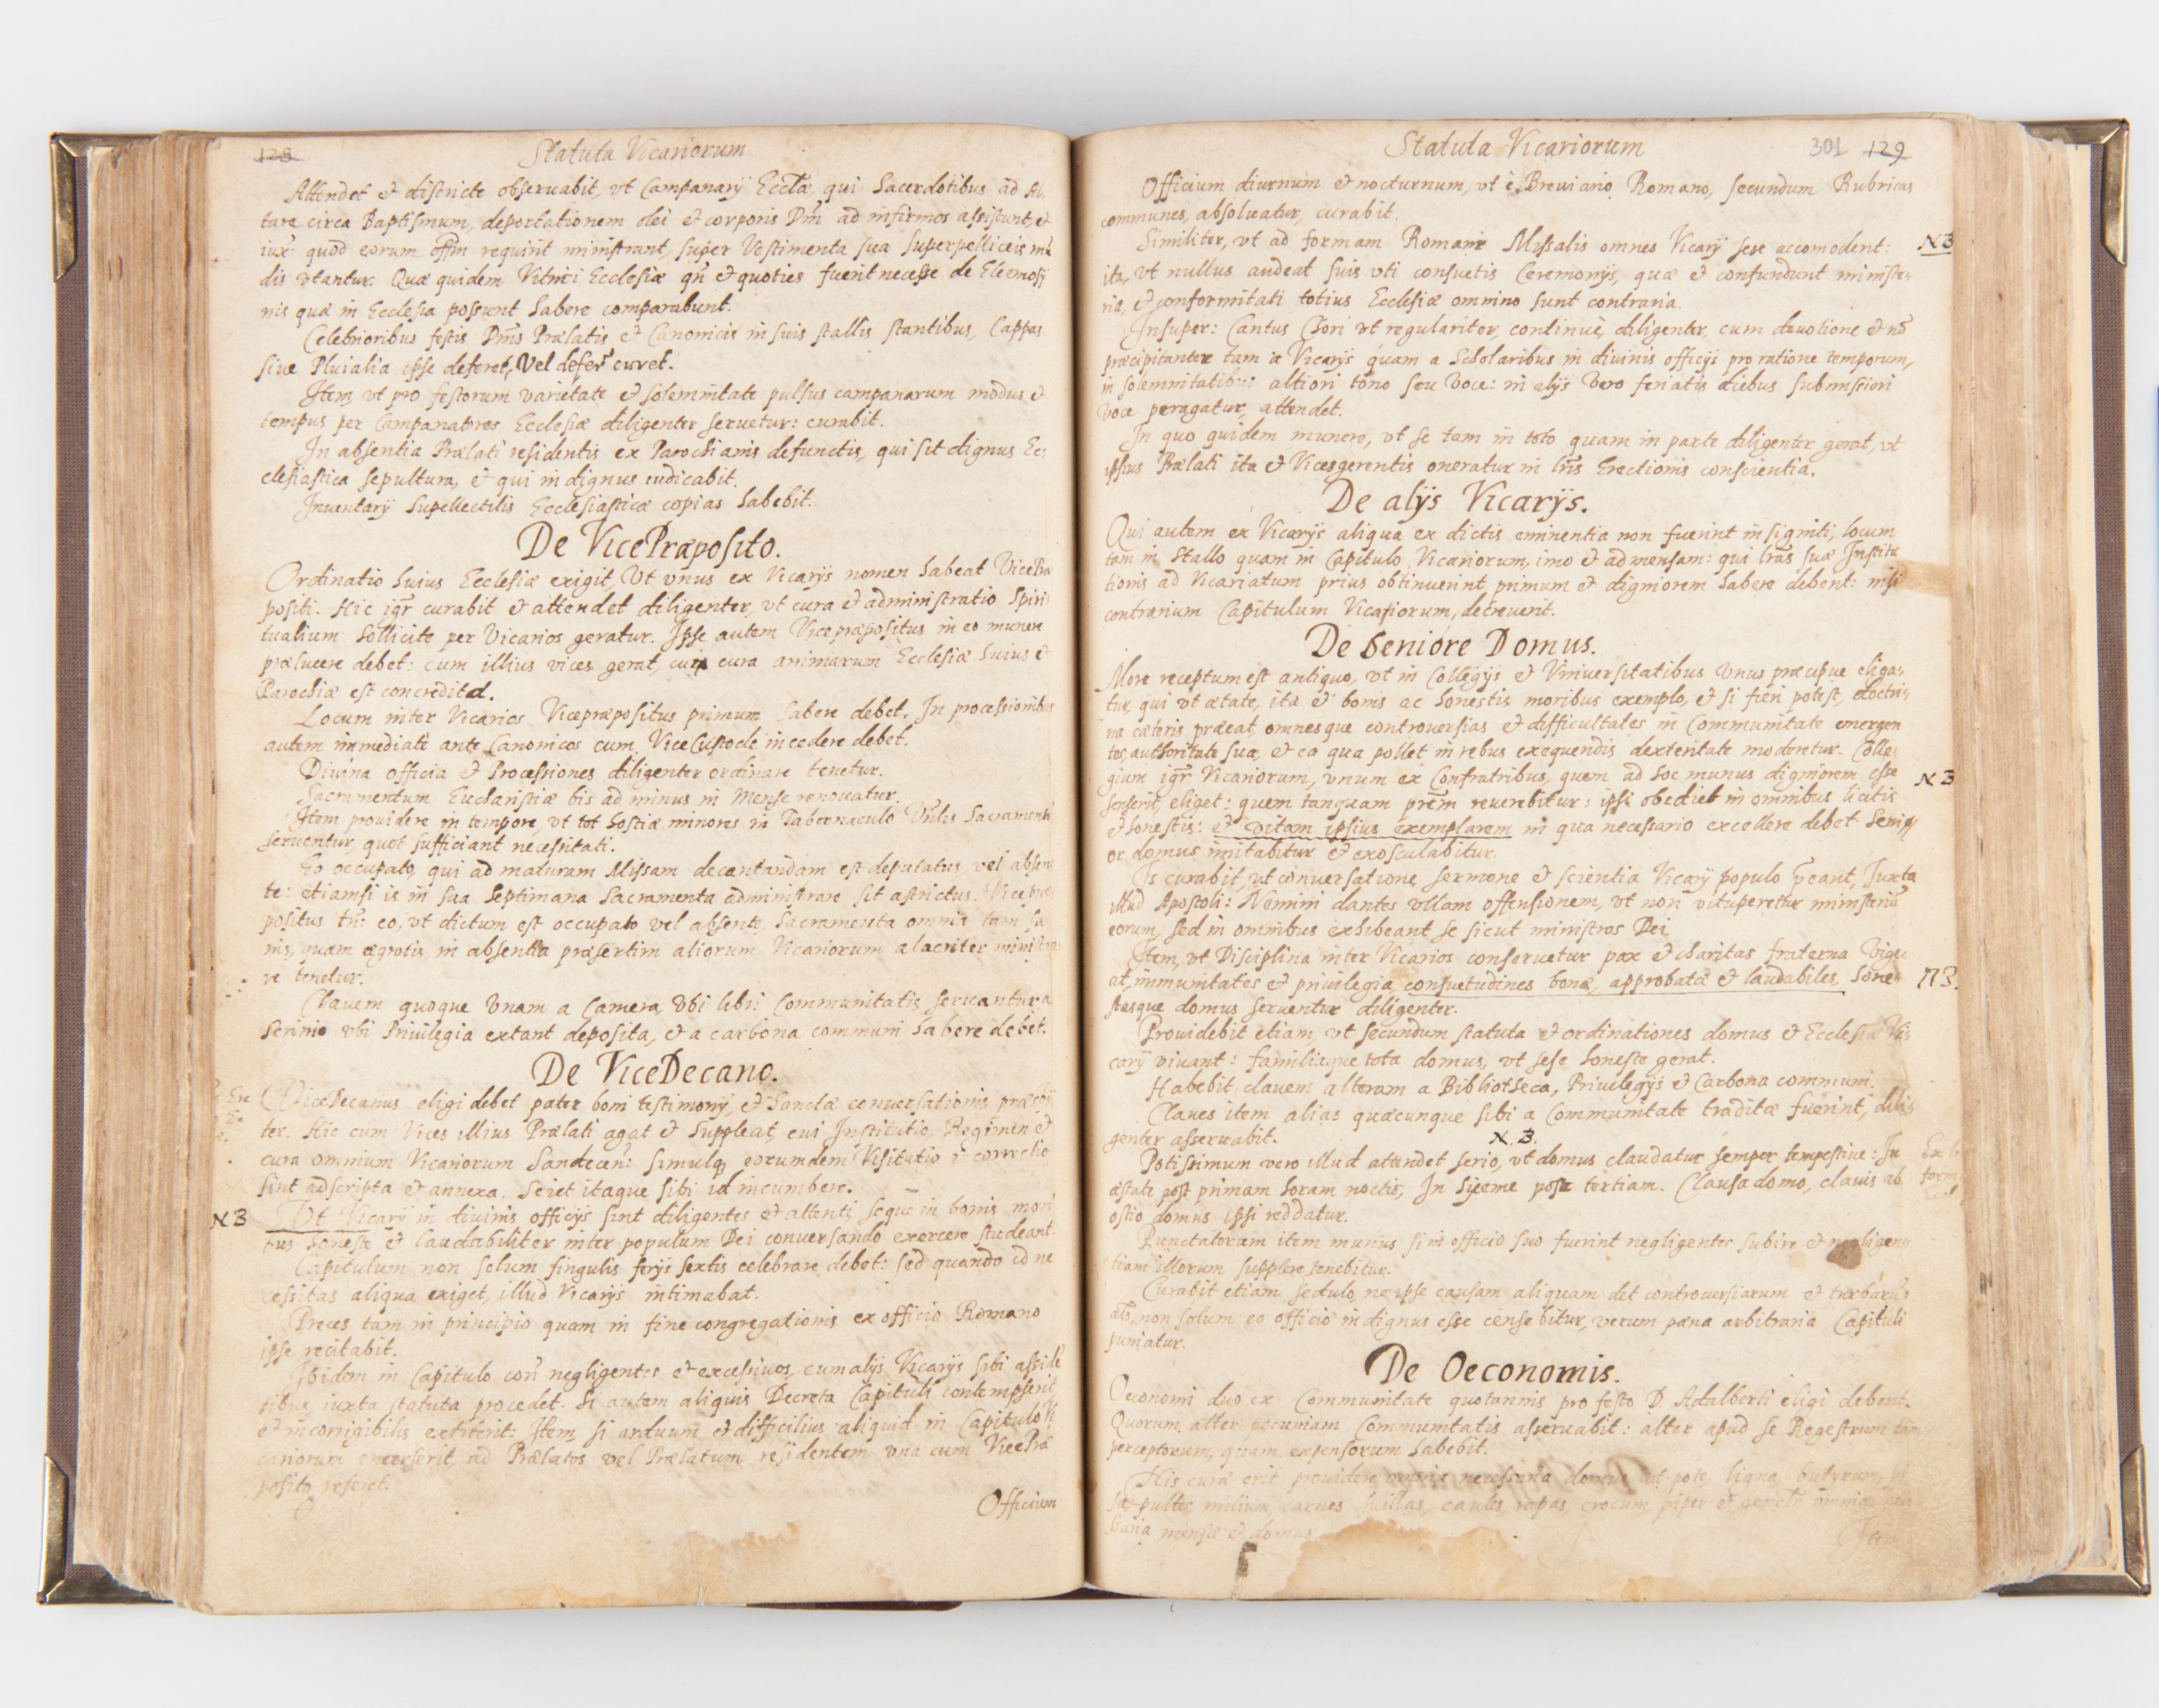 128 Statuta Vicariorum
Attendet et districte obseruabit, vt Campanarij Eccłæ qui Sacerdotibus ad Al-
tare circa Baptismum, deportationem olei et corporis Dm̃ ad infirmos assistunt, et
iux: quod eorum offm̃ requirit ministrant, super Vestimenta sua superpelliceis mũ
dis vtantur. Quæ quidem Vitrici Ecclesiæ qñ et quoties fuerit necesse de Eleemosÿ
nis quæ in Ecclesia possunt habere comparabunt.
Celebrioribus festis Dm̃s Prælatis et Canonicis in suis stallis stantibus, Cappas
siue Pluialia ipse deferet, Vel defer̃ curet.
Item vt pro festorum varietate et solemnitate pulsus campanarum modus et
tempus per Campanatores Ecclesiæ diligenter seruetur: curabit.
In absentia Prælati residentis ex Parochianis defunctis, qui sit dignus Ec:
clesiastica sepultura, et qui indignus iudicabit.
Inuentarij Supellectilis Ecclesiasticæ copias habebit.
De VicePræposito.
Ordinatio huius Ecclesiæ exigit, Vt vnus ex Vicarijs nomen habeat VicePræ
positi. Hic igr̃ curabit et attendet diligenter, vt cura et administratio Spiri
tualium sollicite per Vicarios geratur. Ipse autem Vicepræpositus in eo munere
prælucere debet: cum illius vices gerat, cui cura animarum Ecclesiæ huius et
Parochiæ est concredita.
Locum inter Vicarios Vicepræpositus primum habere debet. In processionibus
autem immediatè ante Canonicos cum ViceCustode incedere debet.
Diuina officia et Processiones diligenter ordinare tenetur.
Sacramentum Eucharistiæ bis ad minus in Mense renouatur.
Item prouidere in tempore, vt tot hostiæ minores in Tabernaculo Vñlis Sacramenti
seruentur, quot sufficiant necessitati.
Eo occupato, qui ad maturam Missam decantandam est deputatus, vel absen
te: etiamsi is in sua Septimana Sacramenta administrare sit astrictus. Vicepræ
positus tñ: eo, vt dictum est occupato vel absente, Sacramenta omnia tam sa
nis, quam ægrotis in absentia præsertim aliorum Vicariorum alacriter ministra
re tenetur.
Clauem quoque Vnam a Camera, vbi libri Communitatis seruantur a
Scrinio vbi Priuilegia extant deposita, et a carbona communi habere debet.
De ViceDecano.
ViceDecanus eligi debet pater boni testimonij, et Sanctæ conuersationis
ter. Hic cum Vices illius Prælati agat et suppleat, cui Institutio, Regimen et
cura omnium Vicariorum Sandecen: simulq̃ eorumdem Visitatio et correctio
sint adscripta et annexa. Sciet itaque sibi id incumbere.
NB Vt Vicarij in diuinis officijs sint diligentes et attenti, seque in bonis mori
bus honeste et laudabiliter inter populum Dei conuersando exercere studeant.
Capitulum non solum singulis ferijs sextis celebrare debet: sed quando id ne
cessitas aliqua exiget, illud Vicarijs intimabat.
Preces tam in principio quam in fine congregationis ex officio Romano
ipse recitabit.
Ibidem in Capitulo con̄ negligentes et excessiuos, cum alijs Vicarijs sibi assidẽ
tibus, iuxta statuta procedet. Si autem aliquis Decreta Capituli contempserit
et incorrigibilis extiterit: Item si arduum et difficilius aliquid in Capitulo Vi
cariorum emerserit, ad Prælatos vel Prælatum residentem vna cum VicePræ
posito referet.
Officium
Statuta Vicariorum 301 129
Officium diurnum et nocturnum, vt è Breuiario Romano, secundum Rubricas
communes, absoluatur, curabit.
Similiter, vt ad formam Romani Missalis omnes Vicarij sese accomodent: NB
ita, vt nullus audeat suis vti consuetis Ceremonijs, quæ et confundunt ministe:
ria, et conformitati totius Ecclesiæ omnino sunt contraria.
Insuper: Cantus Chori vt regulariter, continuè, diligenter, cum deuotione et nõ
præcipitanter tam a Vicarijs quam a Scholaribus in diuinis officijs pro ratione temporum,
in solemnitatibus altiori tono seu voce: in alijs vero feriatis diebus submissiori
voce peragatur, attendet.
In quo quidem munere, vt se tam in toto quam in parte diligenter gerat, vt
ipsius Prælati ita et Vicesgerentis oneratur in lr̃is Erectionis conscientia.
De alijs Vicarijs.
Qui autem ex Vicarijs aliqua ex dictis eminentia non fuerint insigniti, locum
tam in Stallo quam in Capitulo Vicariorum, imo et ad mensam: qui lr̃as suæ Institu
tionis ad Vicariatum prius obtinuerint, primum et digniorem habere debent: nisi
contrarium Capitulum Vicariorum, decreuerit.
De Seniore Domus.
More receptum est antiquo, vt in Collegijs et Vniuersitatibus Vnus præcipue eliga:
tur, qui vt ætate, ita et bonis ac honestis moribus exemplo, et si fieri potest, doctri:
na cæteris præeat, omnesque controuersias et difficultates in Communitate emergen
tes, authoritate sua, et ea qua pollet in rebus exequendis dexteritate moderetur. Colle:
gium igr̃ Vicariorum, vnum ex Confratribus, quem ad hoc munus digniorem esse NB
senserit, eliget: quem tanquam pr̃em reuerebitur: ipsi obediet in omnibus licitis
et honestis: et vitam ipsius exemplarem in qua necessario excellere debet Seni
or domus imitabitur et exosculabitur.
Is curabit, vt conuersatione, sermone et scientia Vicarij populo p̃eant, Iuxta
illud Apostoli: Nemini dantes vllam offensionem, vt non vituperetur ministeriũ
eorum, sed in omnibus exhibeant se sicut ministros Dei.
Item, vt Disciplina inter Vicarios conseruetur pax et charitas fraterna Vige:
at, immunitates et priuilegia, consuetudines bonæ, approbatæ et laudabiles, hone: NB.
stesque domus seruentur diligenter.
Prouidebit etiam, vt secundum statuta et ordinationes domus et Ecclesiæ Vi:
carij viuant: familiaque tota domus, vt sese honeste gerat.
Habebit clauem alteram a Bibliotheca, Priuilegijs et Carbona communi.
Claues item alias quæcunque sibi a Communitate traditæ fuerint, dili:
genter asseruabit. NB.
Potissimum vero illud attendet serio, vt domus claudatur semper tempestiue: In
æstate post primam horam noctis, In hyeme post tertiam. Clausa domo, clauis ab
ostio domus ipsi reddatur.
Punctatorum item munus si in officio suo fuerint negligentes subire et negligen
tiam illorum supplere tenebitur.
Curabit etiam sedulo, ne ipse causam aliquam det controuersiarum et turbarũ:
non solum eo officio indignus esse censebitur, verum pæna arbitraria Capituli
puniatur.
De Oeconomis.
Oeconomi duo ex Communitate quotannis pro festo D. Adalberti eligi debent.
Quorum, alter pecuniam Communitatis asseruabit: alter apud se Regestrum tam
perceptorum, quam expensorum habebit.
His curæ erit prouidere omnia necessaria domus vt pote, ligna, butyrum,
pultes, milium, carnes suillas, caules, rapas, crocum, piper et omnia
mensæ et domus.